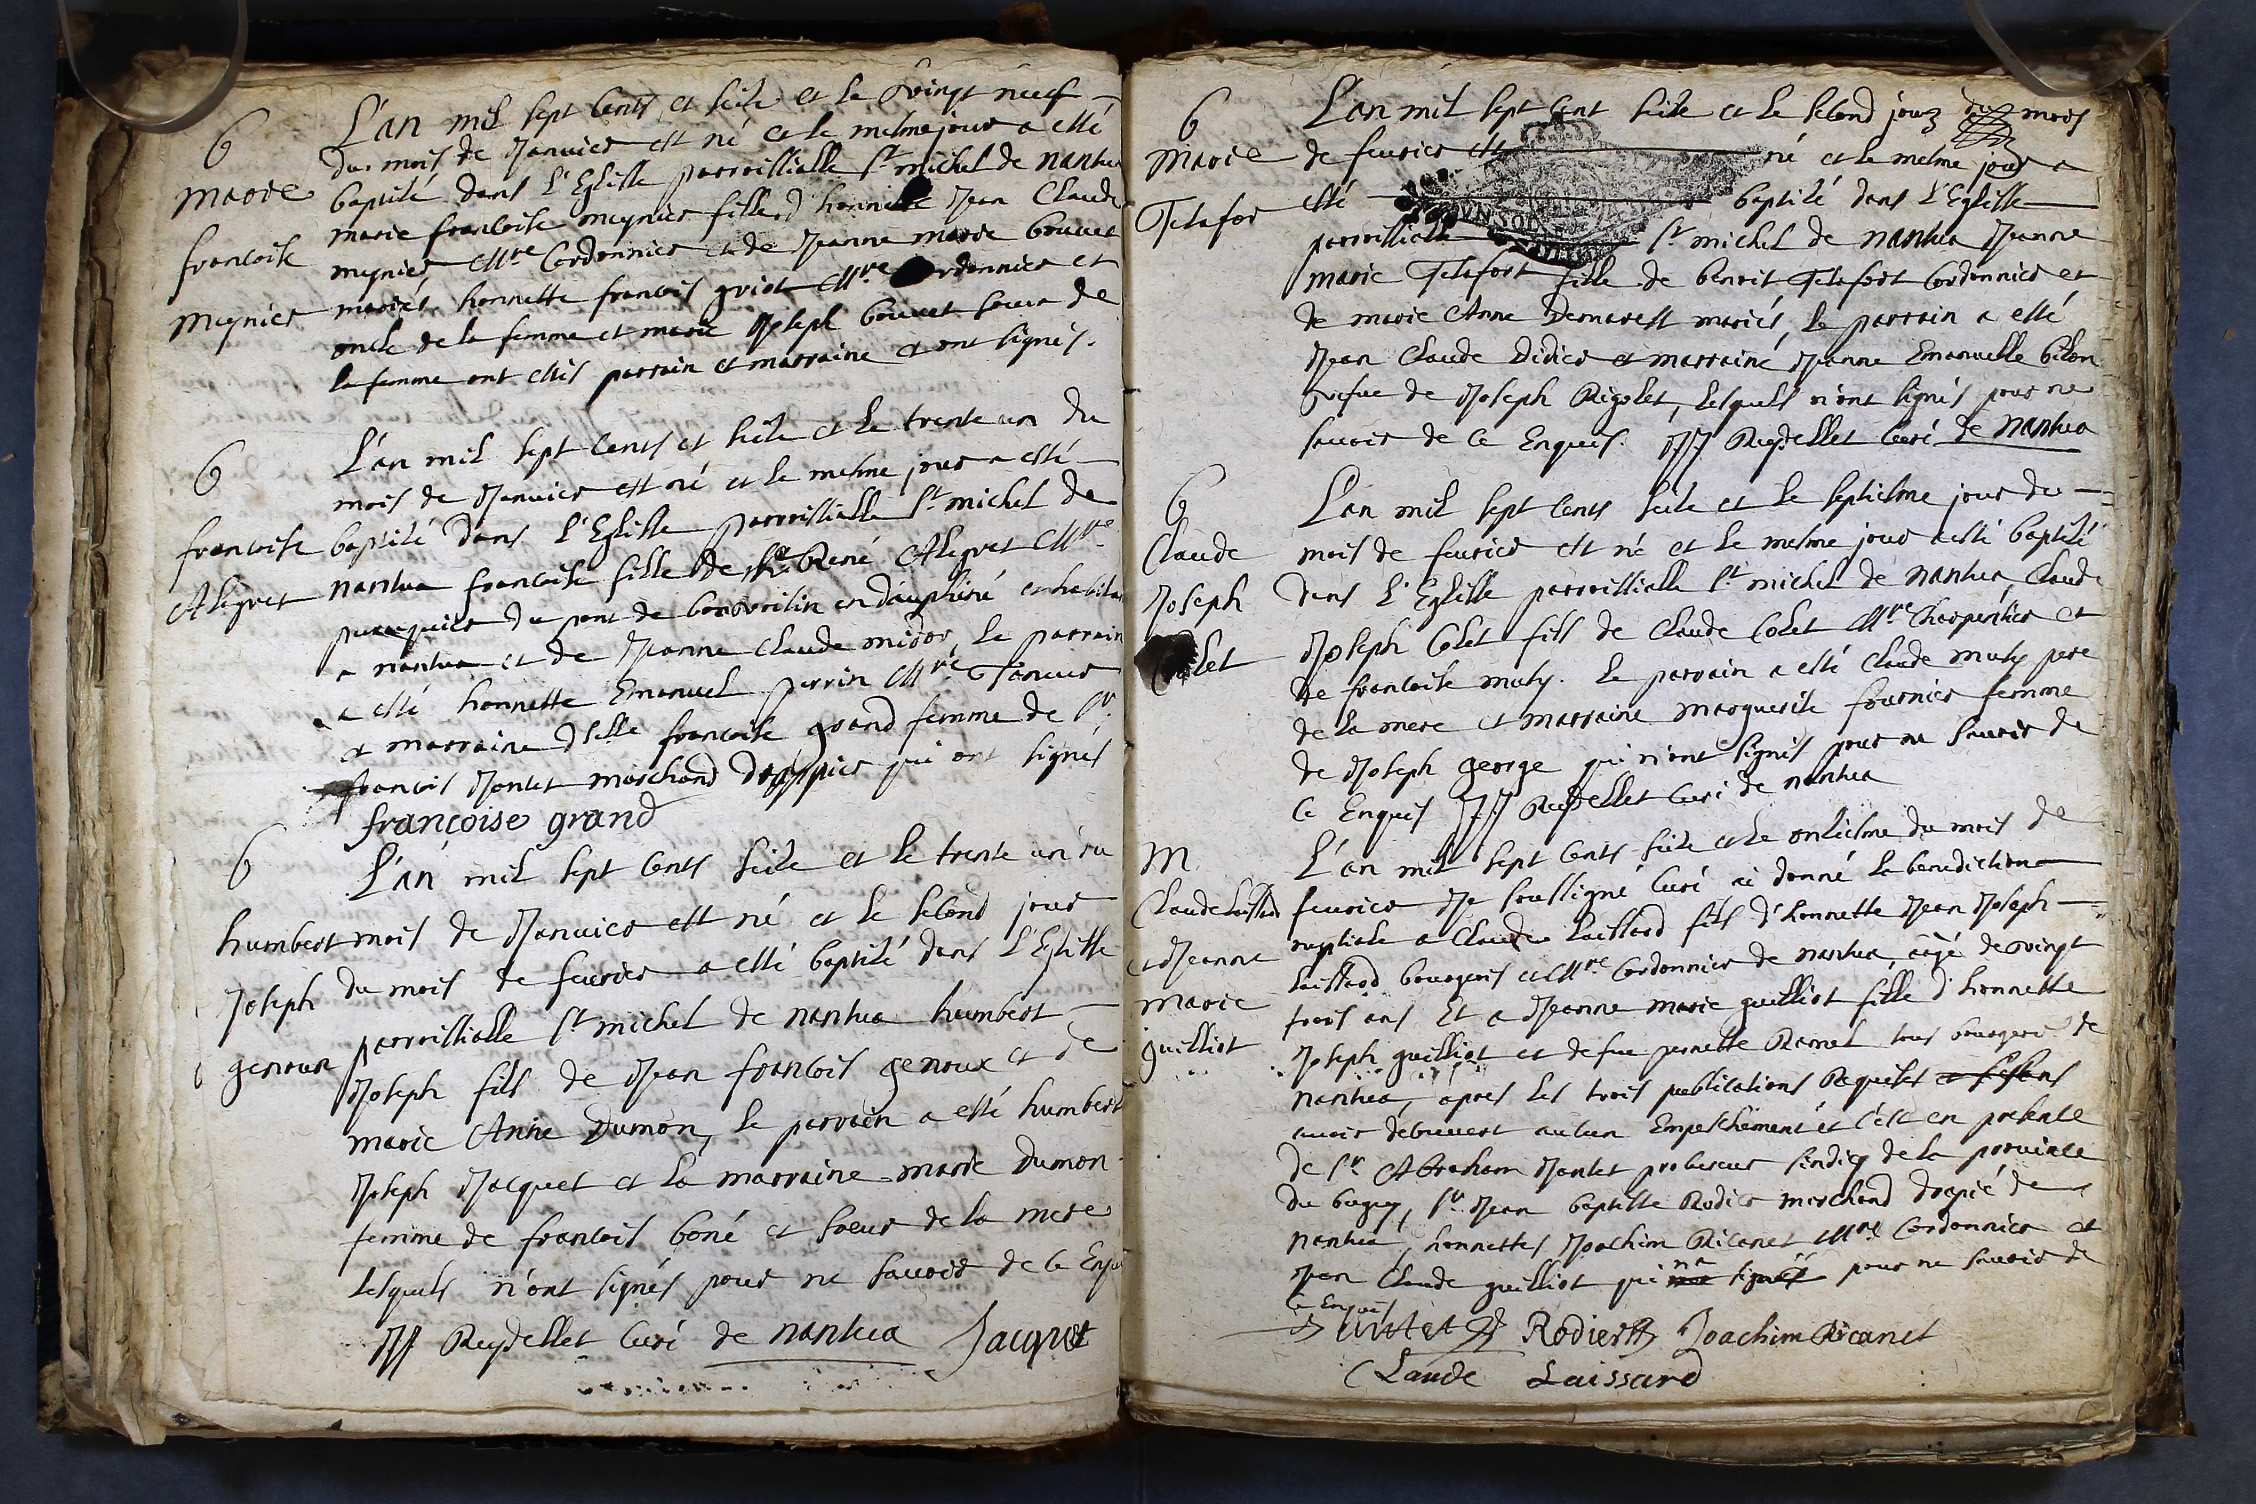 6
marie
francoise
meynier
L'an mil sept cents et seize et le vingt neuf
du mois de Janvier est né et le mesme jour a esté
baptisé dans l'Eglise parroissialle st michel de nantua
marie francoise meynier fille d'honneste Jean Claude
meynier Mtre Cordonnier et de Jeanne marie bouvet
mariés, honnette francois guiot Mtre Cordonnier et
oncle de la femme et marie Joseph bouvet soeur de
la femme ont estés parrain et marraine et ont signés.
6
francoise
Alegret
L'an mil sept cents et seize et le trente un du
mois de Janvier est né et le mesme jour a esté
baptisé dans l'Eglise parroissialle st michel de
nantua francoise fille de René Alegret Mtre
peruquier du pont de bonvoisin en dauphiné
a nantua et de Jeanne Claude midor, le parrain
a esté honnette Emanuel perrin Mtre Taneur
et marraine dselle francoise grand femme de sr
francois Jantet marchand drappier qui ont signés
françoise grand
6
humbert
Joseph
genoux
L'an mil sept cents seize et le trente un du
mois de Janvier est né et le second jour
du mois de fevrier a esté baptisé dans l'Eglise
parroissialle st michel de nantua humbert
Joseph fils de Jean francois genoux et de
marie Anne Dumon, le parrain a esté humbert
Joseph Jacquet et la marraine marie dumon
femme de francois boné et soeur de la mere
lesquels n'ont signés pour ne savoir de ce Enquis
JJ Reydellet Curé de nantua Jacquet
6
marie
Telafor
L'an mil sept cent seize et le second jour du mois
de fevrier est né et le mesme jour a
esté baptisé dans l'Eglise
parroissialle st michel de nantua Jeanne
marie Telafort fille de benoit Telafort Cordonnier et
de marie Anne Demarest mariés, le parrain a esté
Jean Claude Didier et marraine Jeanne Emanuelle bilon
vefue de Joseph Rigolet, lesquels n'ont signés pour ne
savoir de ce Enquis. JJ Reydellet Curé de Nantua
6
Claude
Joseph
Colet
L'an mil sept cents seize et le septiesme jour du
mois de fevrier est né et le mesme jour a esté baptisé
dans l'Eglise parroissialle st michel de nantua, Claude
Joseph Colet fils de Claude Colet Mtre Charpentier et
de francoise muty. Le parrain a esté Claude muty pere
de la mere et marraine marguerite fournier femme
de Joseph george qui n'ont signés pour ne savoir de
Ce Enquis JJ Reydellet Curé de nantua
M
Claude laissard
et Jeanne
marie
guilliot
L'an mil sept cents seize et le onziesme du mois de
fevrier Je soussigné Curé ai donné la benediction
nuptiale a Claude laissard fils d'honnette Jean Joseph
laissard bourgeois et Mtre Cordonnier de nantua, aigé de vingt
trois ans Et a Jeanne marie guilliot fille d'honnette
Joseph guilliot et de fue pernette Ramel tous bourgeois de
nantua, apres les trois publications Requises
avoir decouvert aucun Empeschement et c'est en presence
de sr Abraham Jantet procureur sindiq de la province
du bugey, sr Jean baptiste Rodier marchand drapié de
nantua, honnettes Joachim Ricanet Mtre Cordonnier et
Jean Claude guilliot qui na signé pour ne savoir de
ce Enquis
Jantet Rodier Joachim Ricanet
Claude Laissard